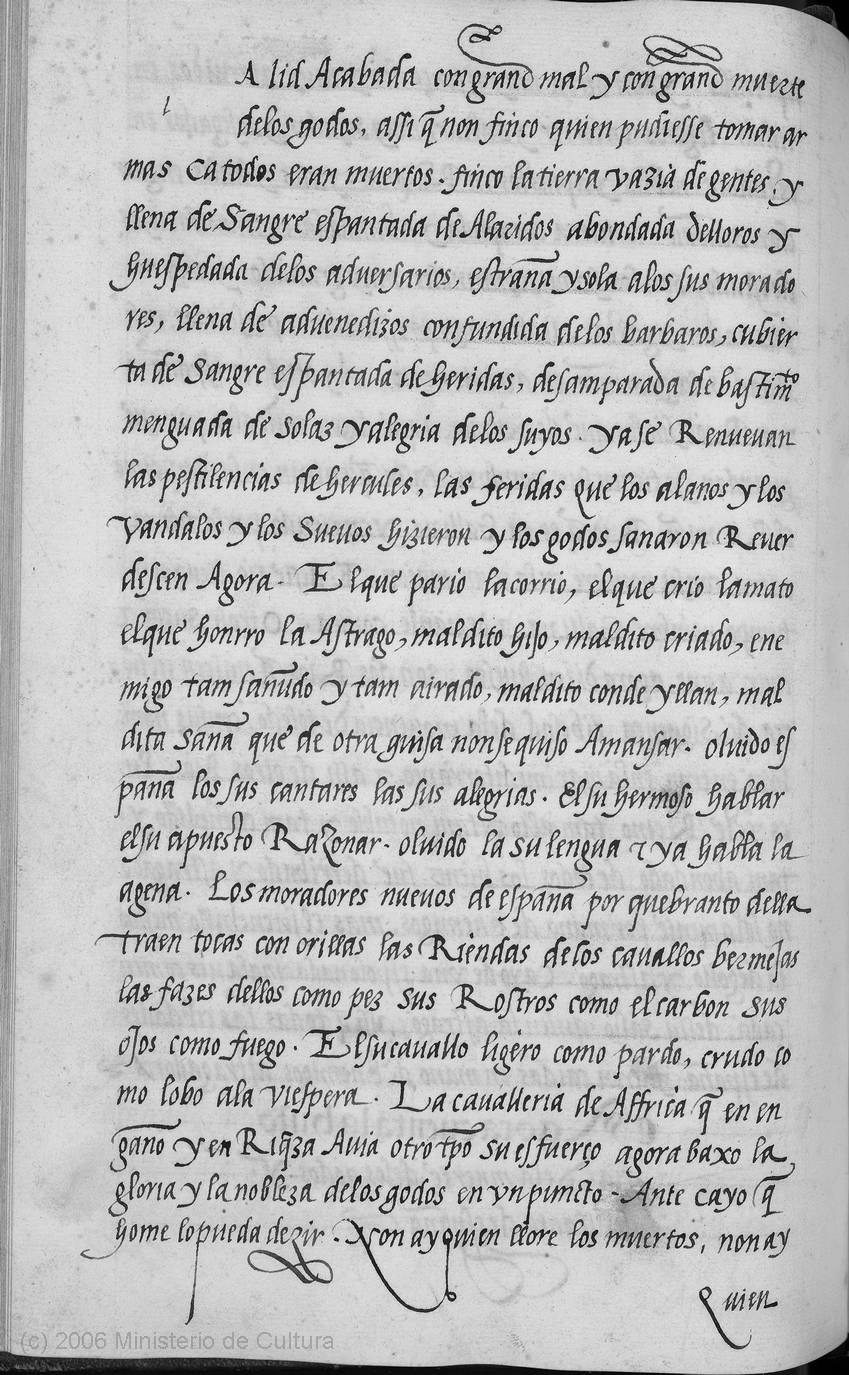 l
A lid Acabada con grand mal y con grand muerte
delos godos, assi q̃ non finco quien pudiesse tomar ar
mas Ca todos eran muertos. finco la tierra vazia de gentes, y
llena de Sangre espantada de Alaridos abondada dellloros y
huespedada delos adversarios, estrãna y sola alos sus morado
res, llena de aduenedizos confundida delos barbaros, cubier
ta de Sangre espantada de heridas, desamparada de bastimto
menguada de solaz y alegria delos suyos. ya se Renuevan
las pestilencias de hercules, las feridas que los alanos y los
vandalos y los Suevos hizieron y los godos sanaron Rever
descen Agora. El que pario la corrio, el que crio la mato
el que honrro la Astrago, maldito hijo, maldito criado, ene
migo tam sañudo y tam airado, maldito conde yllan, mal
dita saña que de otra guisa non se quiso Amansar. oluido es
pãna los sus cantares las sus alegrias. El su hermoso hablar
el su apuesto Razonar. oluido la su lengua z ya habla la
agena. Los moradores nuevos de espãna por quebranto della
traen tocas con orillas las Riendas de los cavallos bermejas
las fazes dellos como pez sus Rostros como el carbon sus
ojos como fuego. El su cauallo ligero como pardo, crudo co
mo lobo ala viespera. La caualleria de Affrica q̃ en en
gãno y en Riq̃za Avia otro tpo su esfuerço agora baxo la
gloria y la nobleza delos godos en vn puncto - Ante cayo q̃
home lo pueda dezir. Non ay quien llore los muertos, non ay
quien
(c) 2006 Ministerio de Cultura